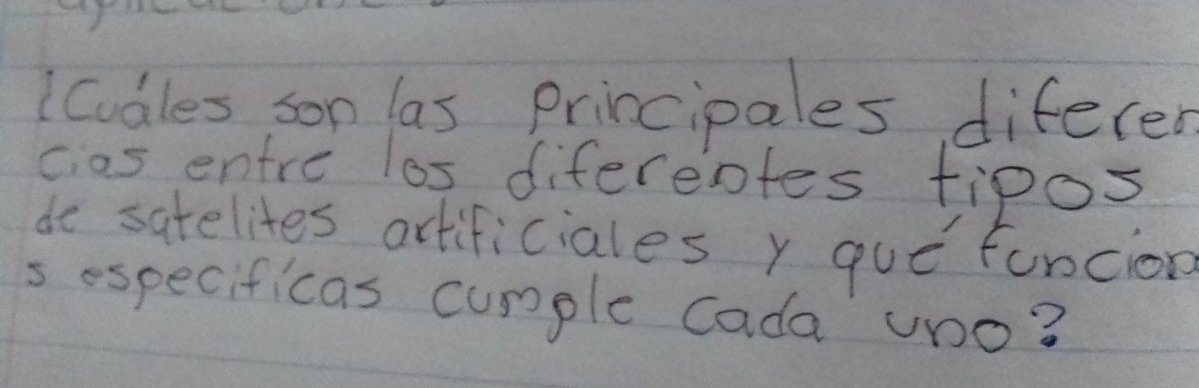 ¿Cuáles son las principales diferen
cias entre los diferentes tipos
de satelites artificiales y qué funcion
s especificas cumple cada uno?